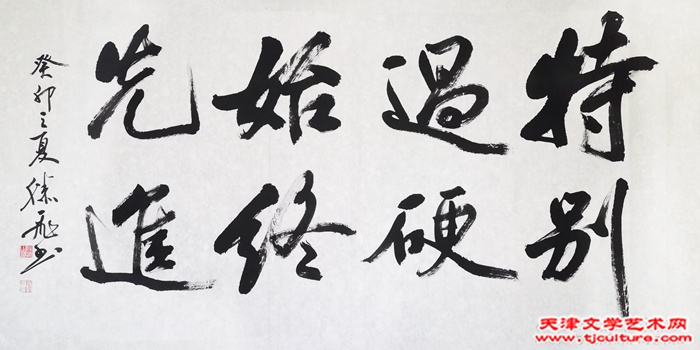 特别
過硬
始终
先進
癸卯之夏
天津文学艺术网
www.tjculture.com